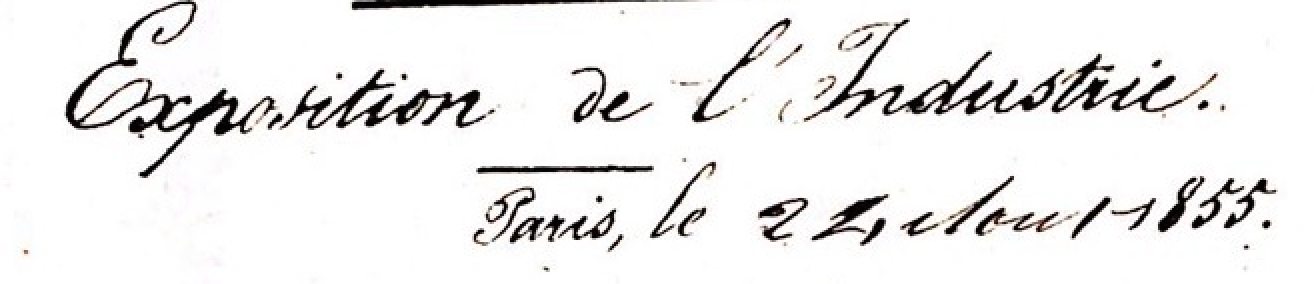 Exposition de l'Industrie.
Paris, le 22 Aout 1855.